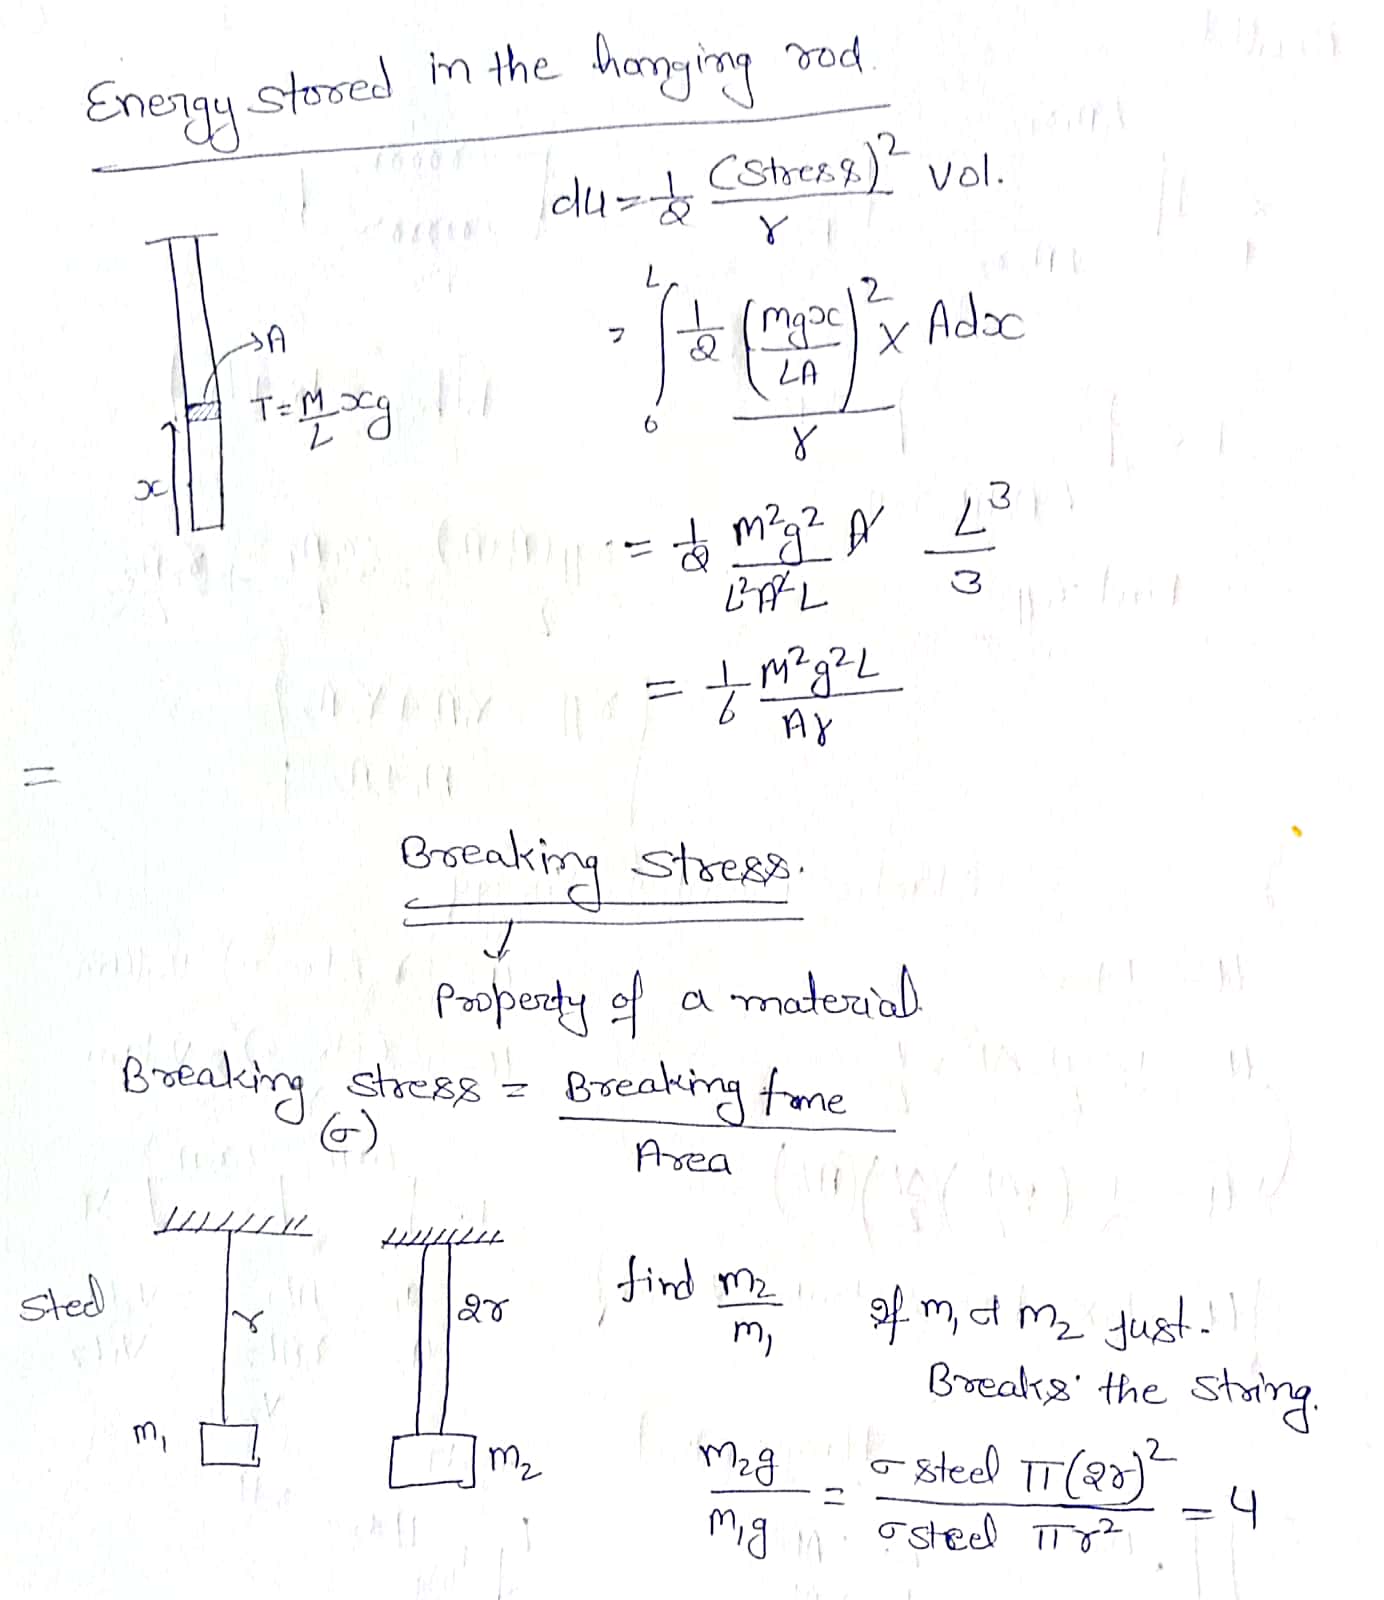 Energy stored in the hanging rod.
du = 1/2 (Stress)² / γ vol.
= ∫₀ᴸ 1/2 (mgx/LA)² × Adx / γ
→A
T = M/L xg
x
= 1/2 m²g² A / L²A²L L³/3
= 1/6 M²g²L / Aγ
=
Breaking Stress.
↓
Property of a material
Breaking stress = Breaking force / Area
(σ)
Steel
r
2r
find m₂/m₁
If m₁ & m₂ just
Breaks the string.
m₁
m₂
m₂g / m₁g = σ steel π(2r)² / σ steel πr² = 4